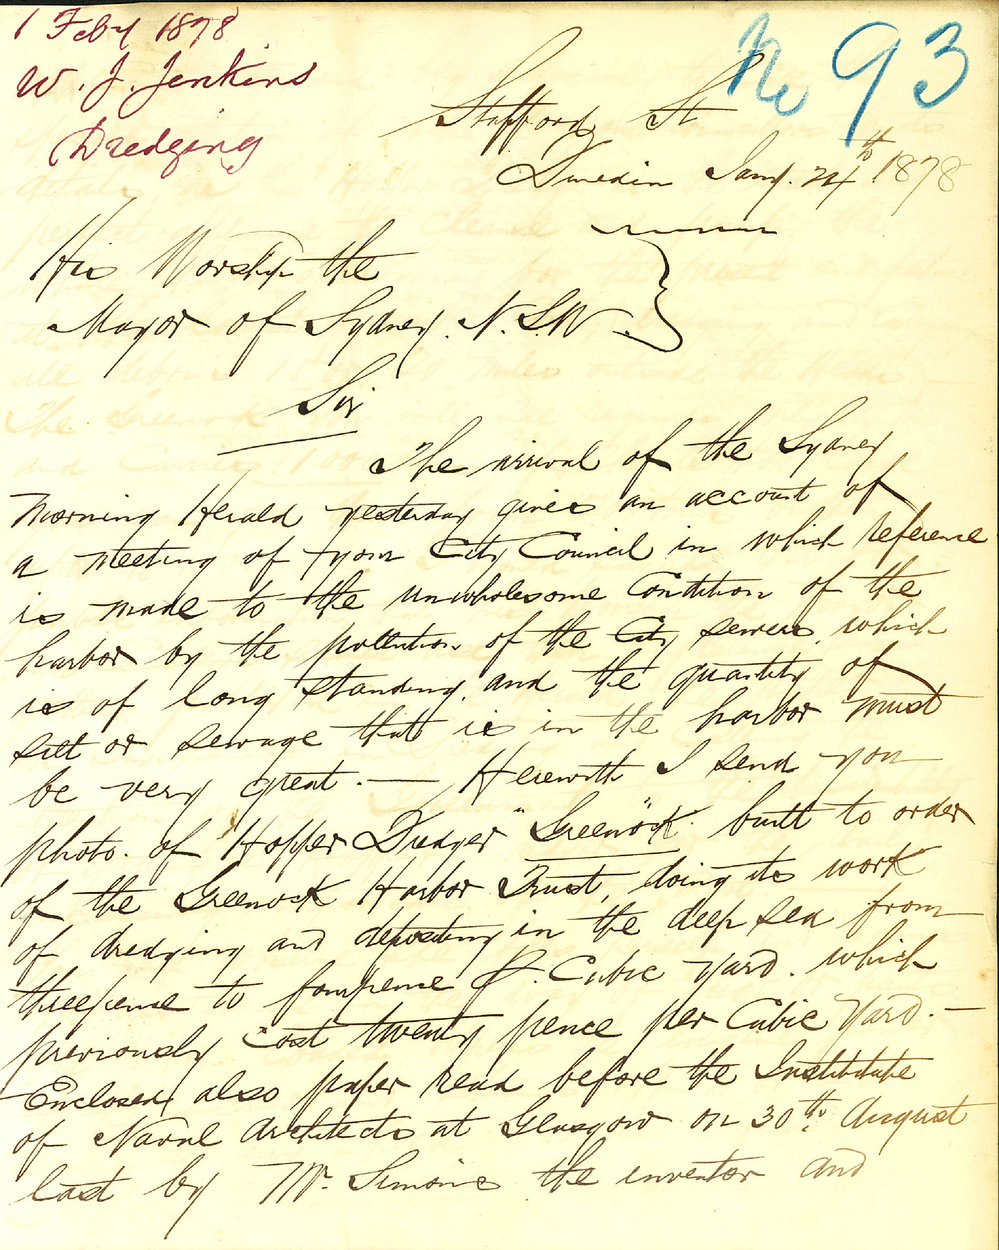 1 Feby 1878
W. J. Jenkins
Dredging
No 93
Stafford St
Dunedin Jany. 24th 1878
His Worship the
Mayor of Sydney. N.S.W.
Sir
The arrival of the Sydney
Morning Herald yesterday gives an account of
a meeting of your City Council in which reference
is made to the unwholesome Condition of the
harbor by the pollution of the City sewers, which
is of long standing, and the quantity of
silt or sewage that is in the harbor must
be very great. — Herewith I send you
photo. of Hopper Dredger "Greenock" built to order
of the Greenock Harbor Trust, doing its work
of dredging and depositing in the deep sea from
threepence to fourpence P. Cubic Yard. which
previously cost twenty pence per Cubic Yard. —
Enclosed also paper read before the Institute
of Naval Architects at Glasgow on 30th August
last by Mr. Simons the inventor and